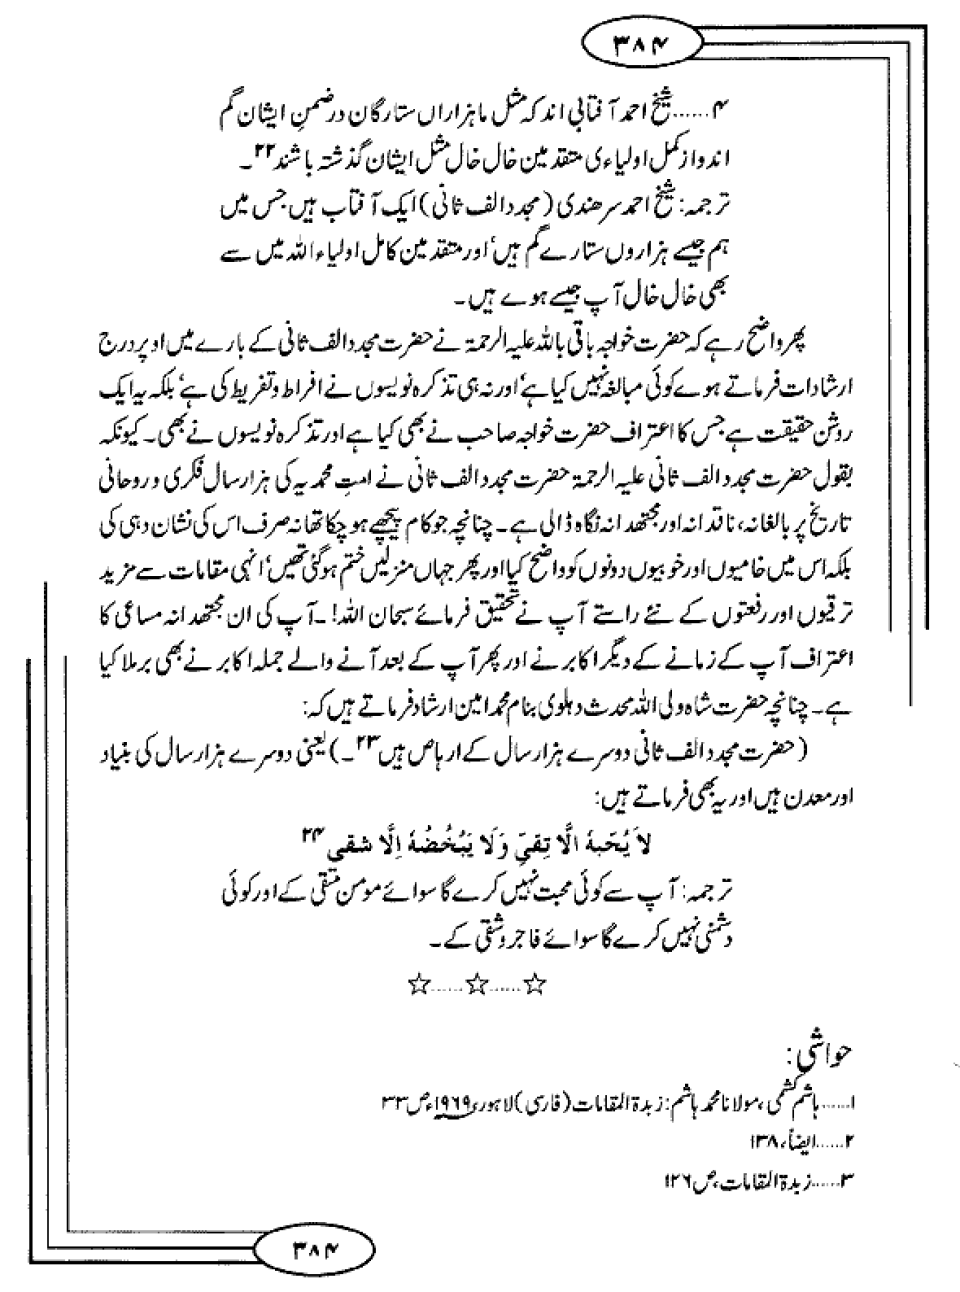 ۳۸۴
۴......شیخ احمد آفتابی اند کہ مثل ما ہزاراں ستارگان در ضمنِ ایشان گم
اند و از کمل اولیاءی متقدمین خال خال مثل ایشان گذشتہ باشند۲۲۔
ترجمہ: شیخ احمد سرھندی (مجدد الف ثانی) ایک آفتاب ہیں جس میں
ہم جیسے ہزاروں ستارے گم ہیں‘ اور متقدمین کامل اولیاء اللہ میں سے
بھی خال خال آپ جیسے ہوے ہیں۔
پھر واضح رہے کہ حضرت خواجہ باقی باللہ علیہ الرحمۃ نے حضرت مجدد الف ثانی کے بارے میں اوپر درج
ارشادات فرماتے ہوے کوئی مبالغہ نہیں کیا ہے‘ اور نہ ہی تذکرہ نویسوں نے افراط و تفریط کی ہے‘ بلکہ یہ ایک
روشن حقیقت ہے جس کا اعتراف حضرت خواجہ صاحب نے بھی کیا ہے اور تذکرہ نویسوں نے بھی۔ کیونکہ
بقول حضرت مجدد الف ثانی علیہ الرحمۃ حضرت مجدد الف ثانی نے امتِ محمدیہ کی ہزار سال فکری و روحانی
تاریخ پر بالغانہ، ناقدانہ اور مجتھدانہ نگاہ ڈالی ہے۔ چنانچہ جو کام پیچھے ہو چکا تھا نہ صرف اس کی نشان دہی کی
بلکہ اس میں خامیوں اور خوبیوں دونوں کو واضح کیا اور پھر جہاں منزلیں ختم ہو گئی تھیں‘ انہی مقامات سے مزید
ترقیوں اور رفعتوں کے نئے راستے آپ نے تحقیق فرمائے سبحان اللہ!۔ آپ کی ان مجتھدانہ مساعی کا
اعتراف آپ کے زمانے کے دیگر اکابر نے اور پھر آپ کے بعد آنے والے جملہ اکابر نے بھی برملا کیا
ہے۔ چنانچہ حضرت شاہ ولی اللہ محدث دہلوی بنام محمد امین ارشاد فرماتے ہیں کہ:
(حضرت مجدد الف ثانی دوسرے ہزار سال کے ارہاص ہیں۲۳۔) یعنی دوسرے ہزار سال کی بنیاد
اور معدن ہیں اور یہ بھی فرماتے ہیں:
لاَ یُحَبہٗ الَّا تِقیِّ وَلَا یَبُخُضُہٗ اِلَّا شقی ۲۴
ترجمہ: آپ سے کوئی محبت نہیں کرے گا سوائے مومن متقی کے اور کوئی
دشمنی نہیں کرے گا سوائے فاجر و شقی کے۔
☆......☆......☆
حواشی:
۱......ہاشم کشمی، مولانا محمد ہاشم: زبدۃ المقامات (فارسی) لاہور، ۱۹۶۹ء ص ۳۳
۲......ایضاً، ۱۳۸
۳......زبدۃ المقامات، ص ۱۲۶
۳۸۴